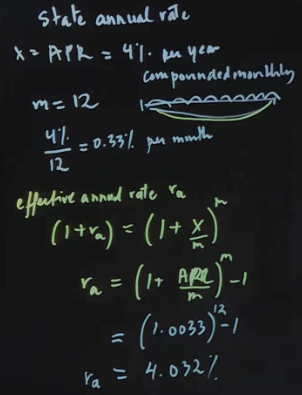 state annual rate
x = APR = 4% per year
compounded monthly
m = 12
4%/12 = 0.33% per month
effective annual rate ra
(1+ra) = (1 + x/m)^m
ra = (1 + APR/m)^m - 1
= (1.0033)^12 - 1
ra = 4.032%